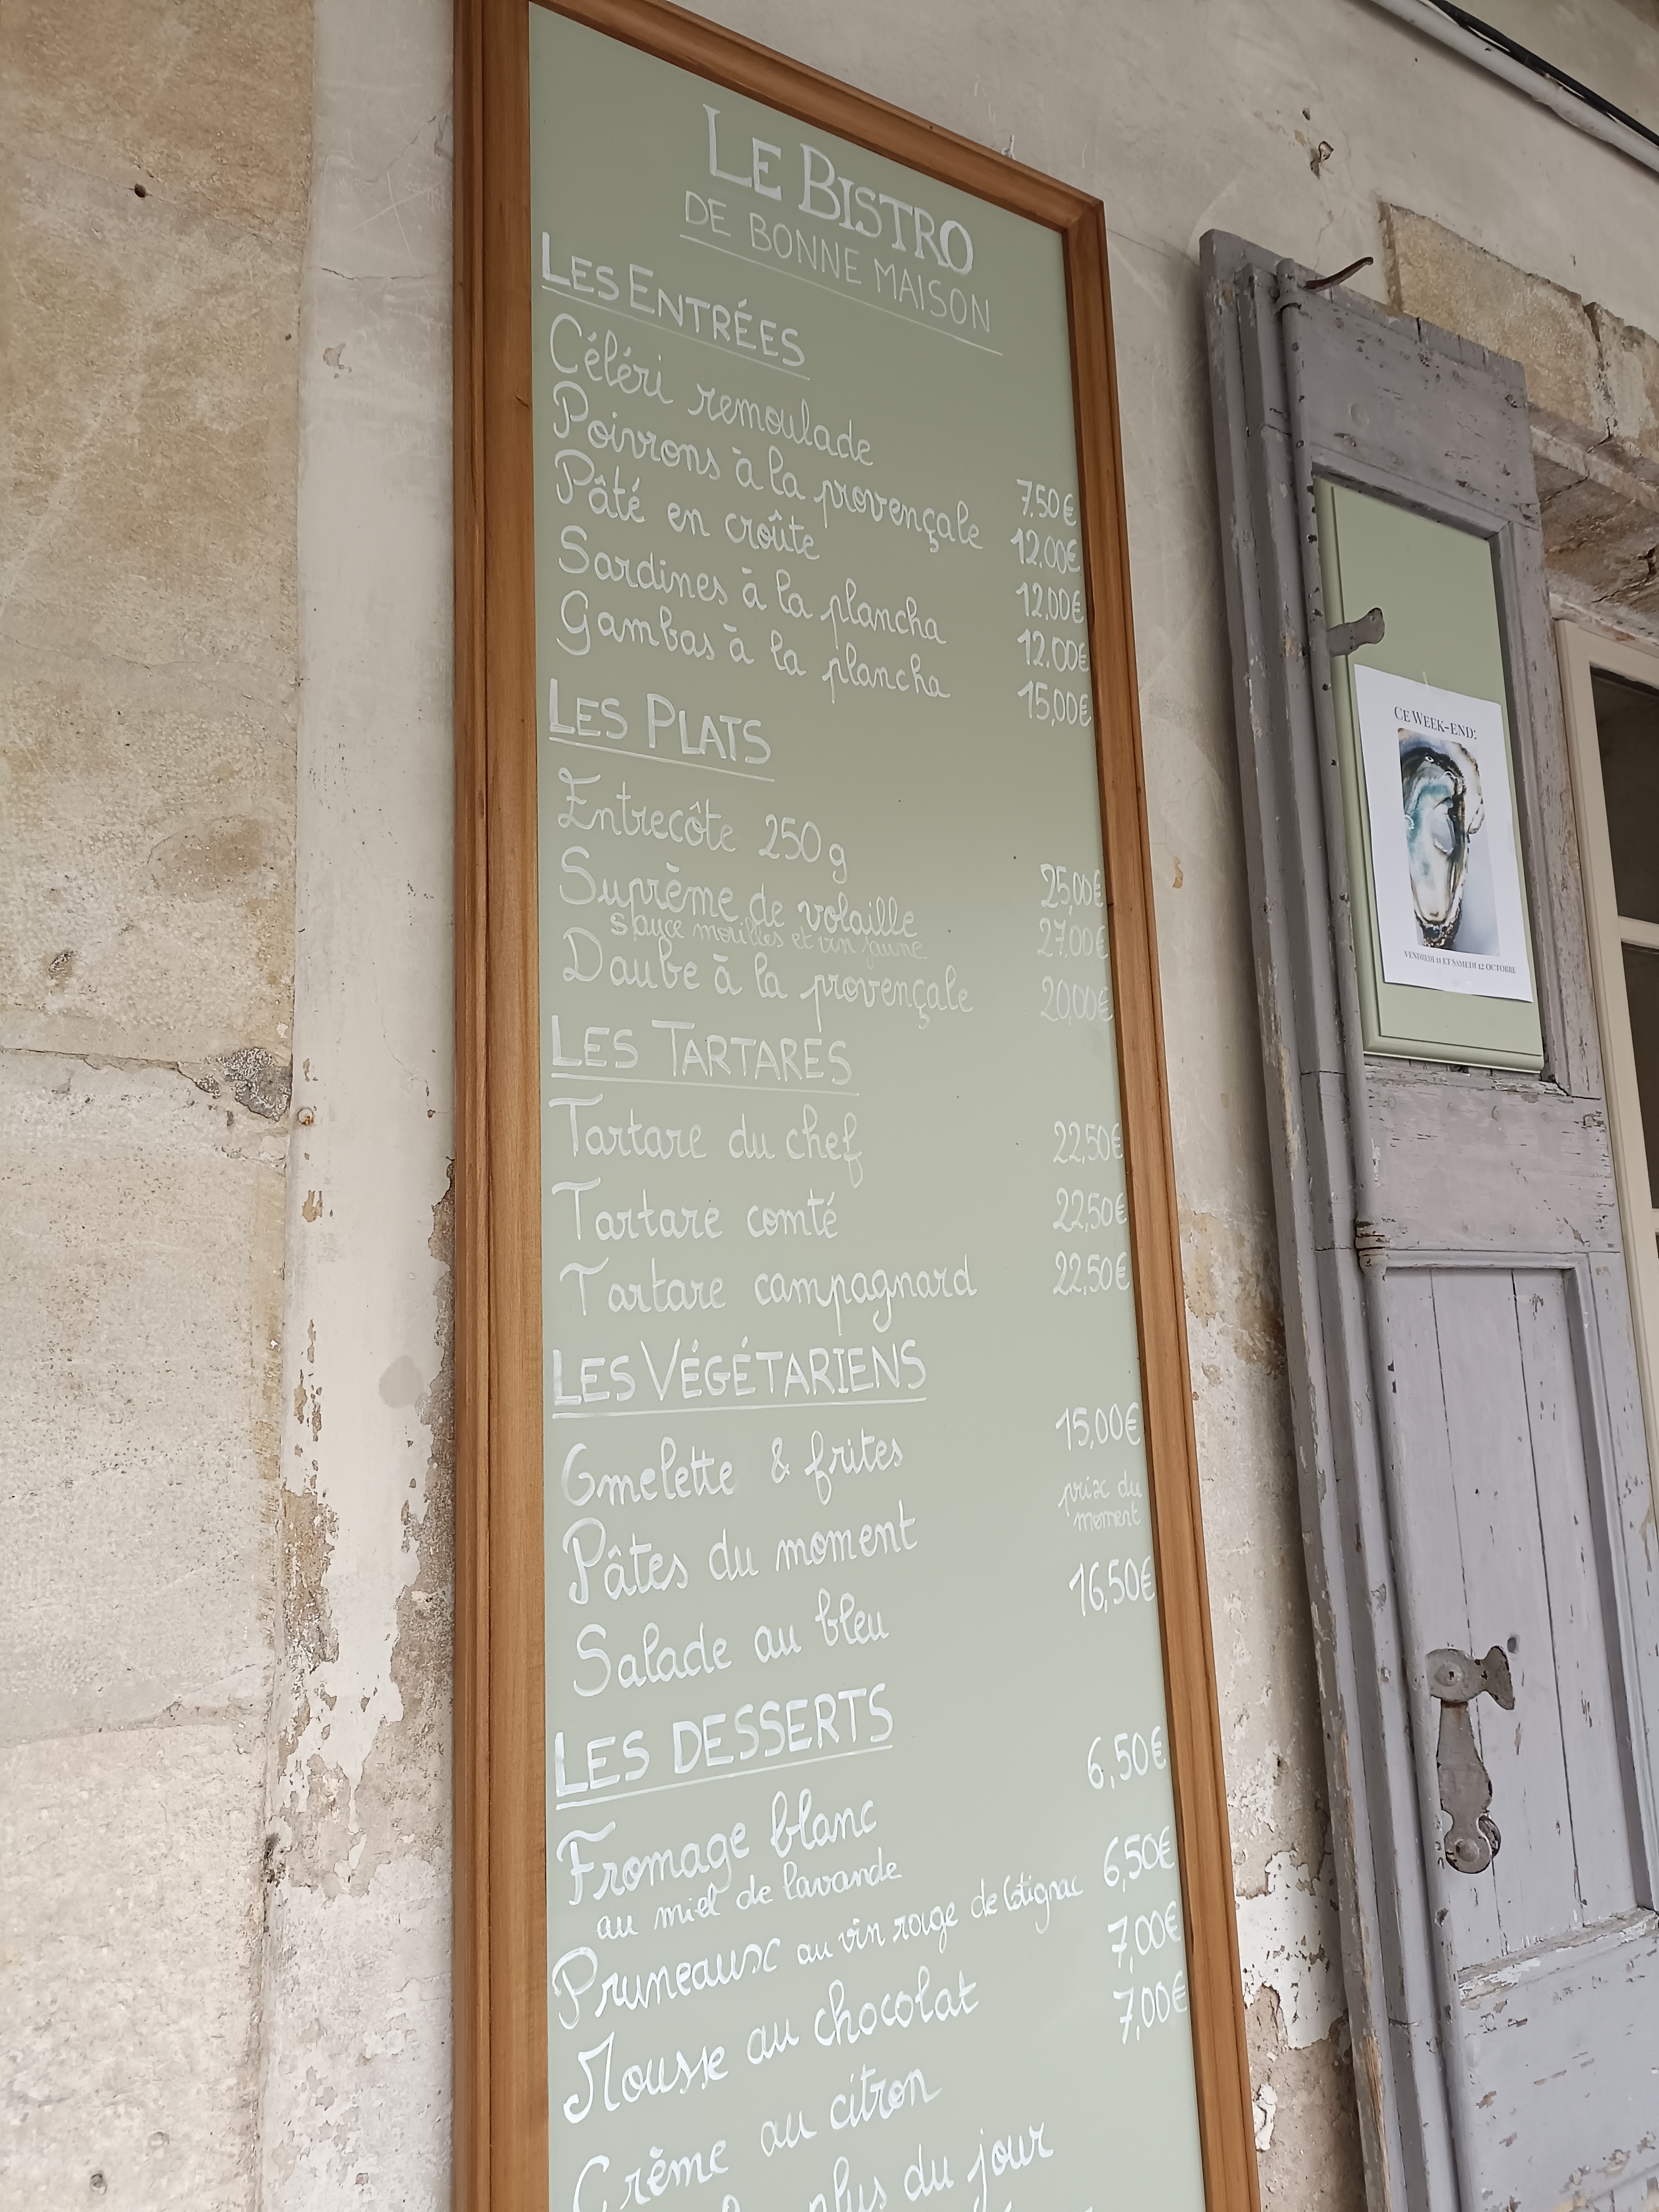 LE BISTRO
DE BONNE MAISON
LES ENTRÉES
Céléri remoulade 7.50€
Poivrons à la provençale 12.00€
Pâté en croûte 12.00€
Sardines à la plancha 12.00€
Gambas à la plancha 15,00€
LES PLATS
Entrecôte 250g 25,00€
Suprême de volaille 27.00€
sauce morilles et vin jaune
Daube à la provençale 20,00€
LES TARTARES
Tartare du chef 22,50€
Tartare comté 22,50€
Tartare campagnard 22,50€
LES VÉGÉTARIENS
Omelette & frites 15,00€
Pâtes du moment prix du
moment
Salade au bleu 16,50€
LES DESSERTS
Fromage blanc 6,50€
au miel de lavande
Pruneaux au vin rouge de Cotignac 6,50€
Mousse au chocolat 7,00€
Crème au citron 7,00€
plus du jour
CE WEEK-END:
VENDREDI 11 ET SAMEDI 12 OCTOBRE